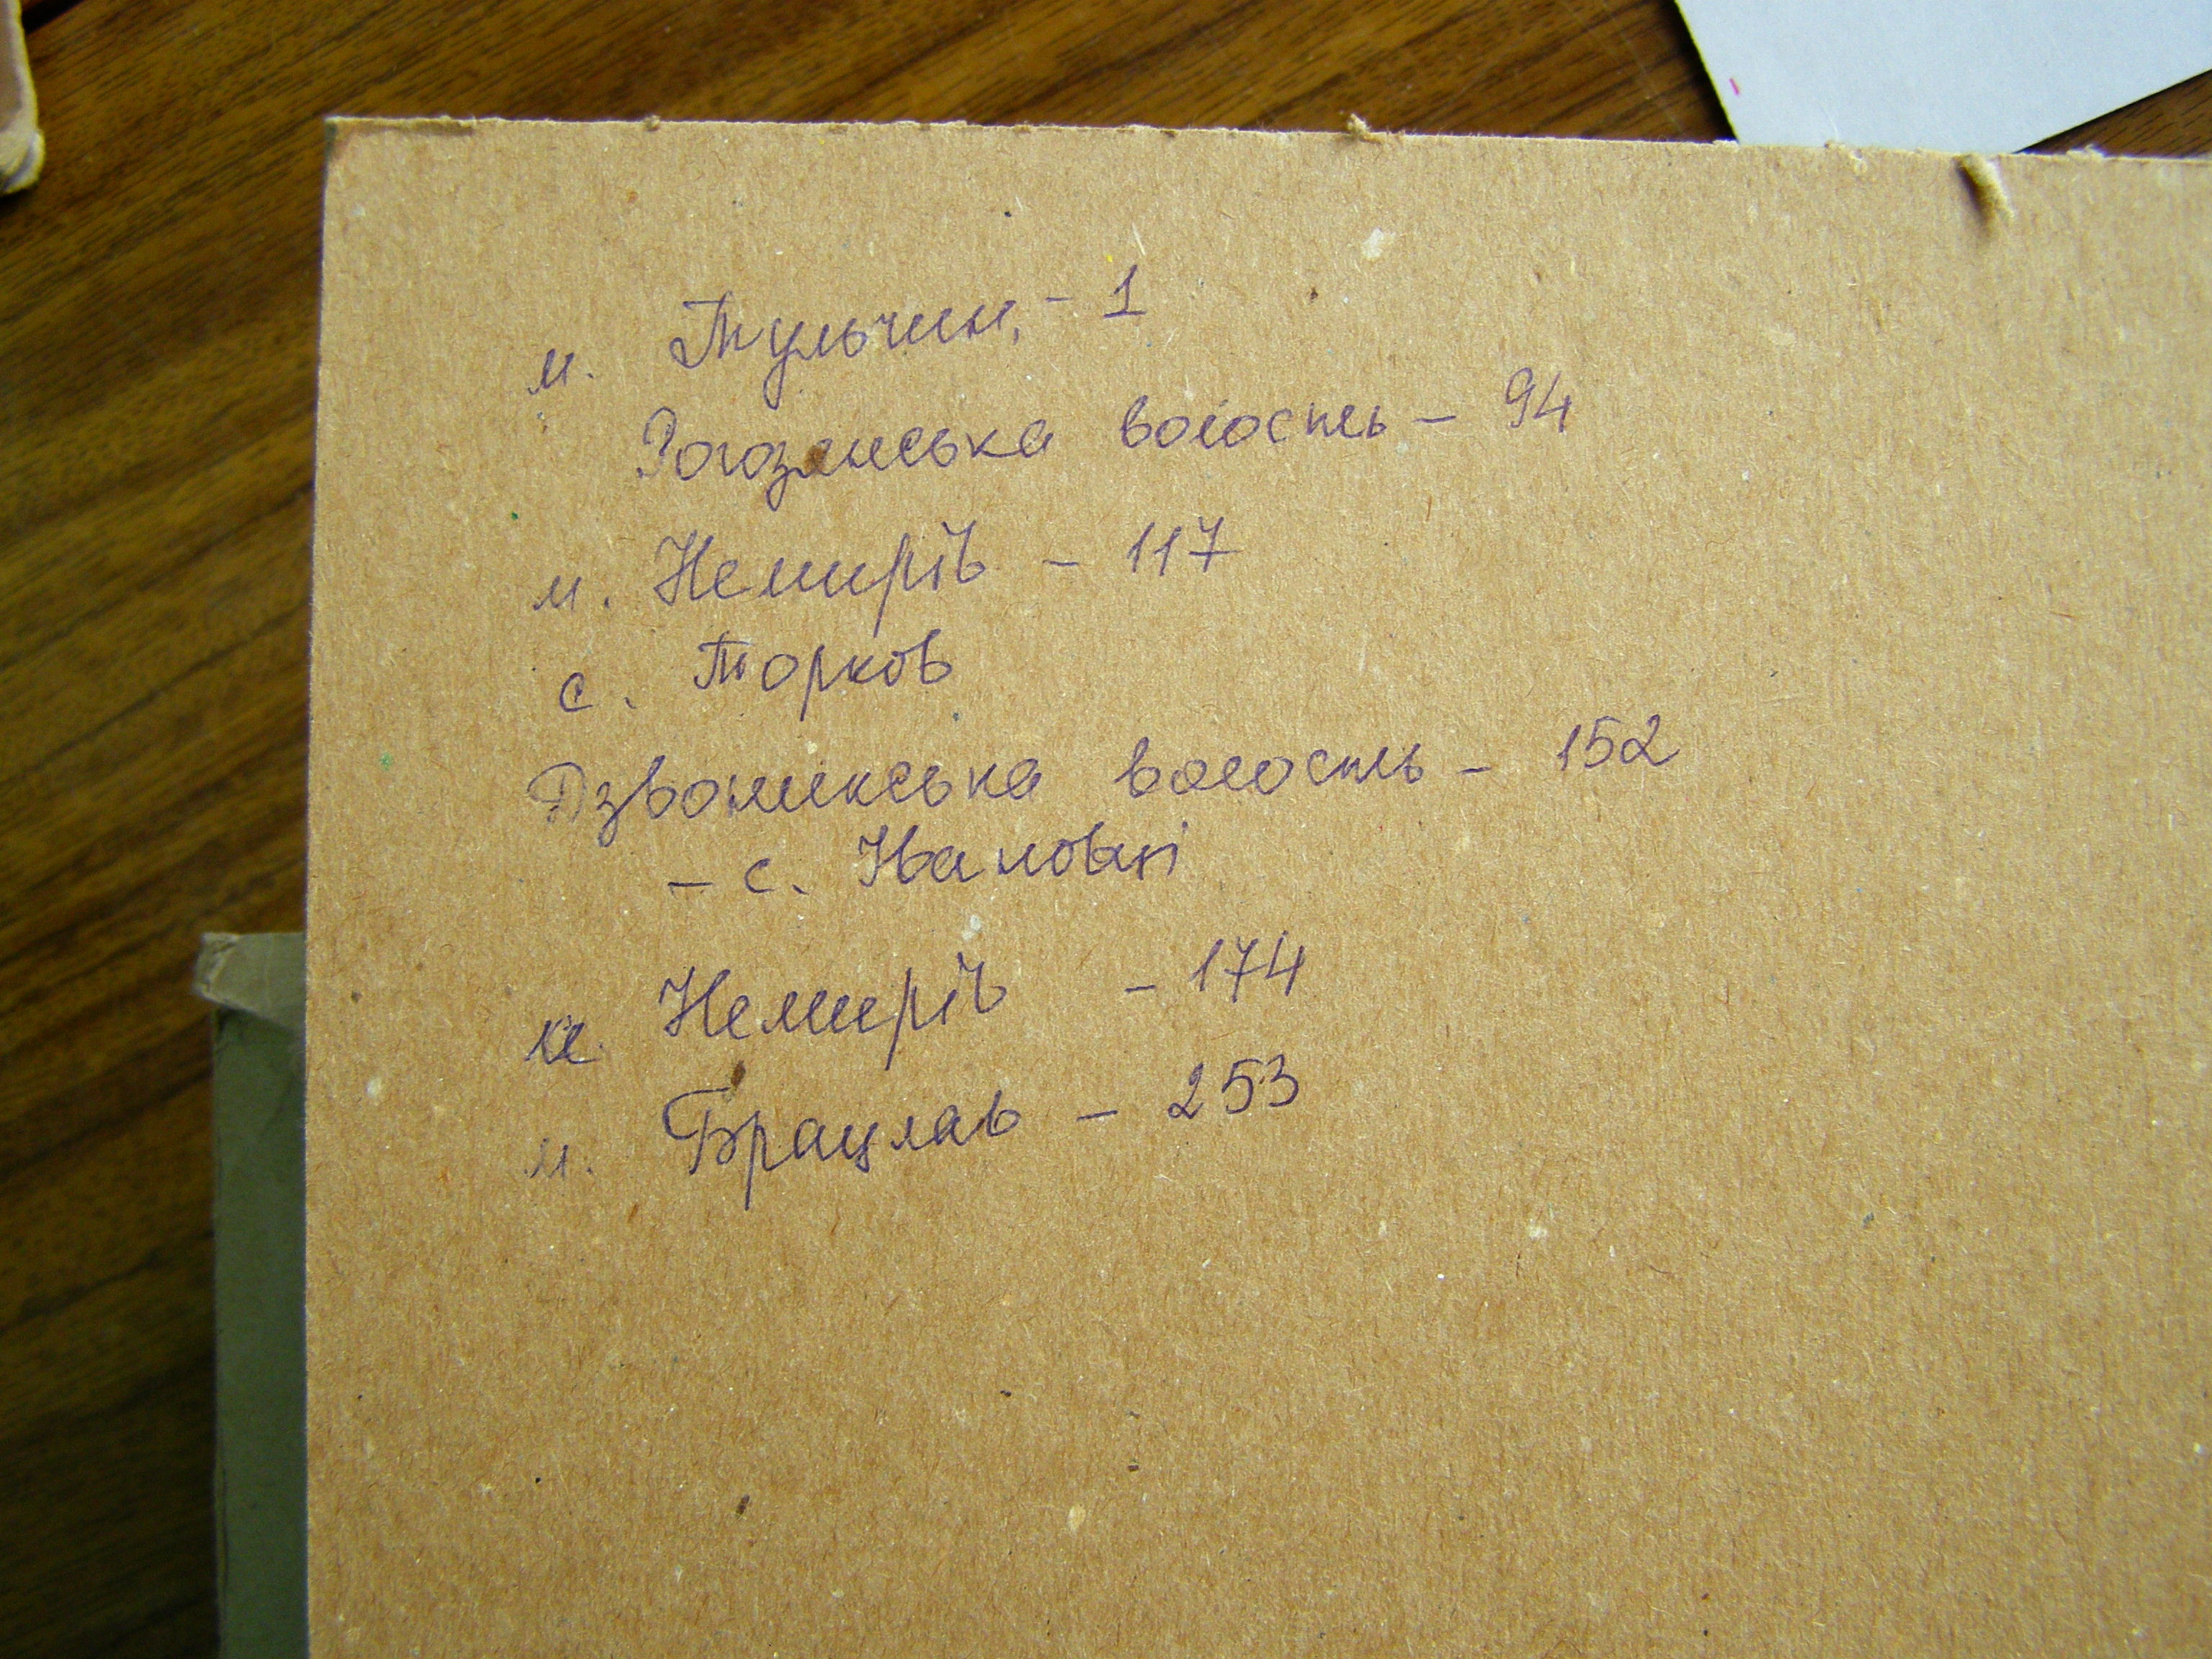 м. Тульчин, - 1
Рогознська волость - 94
м. Немирів - 117
с. Торков
Дзвоникська волость - 152
- с. Івановкі
м. Немирів - 174
м. Брацлав - 253